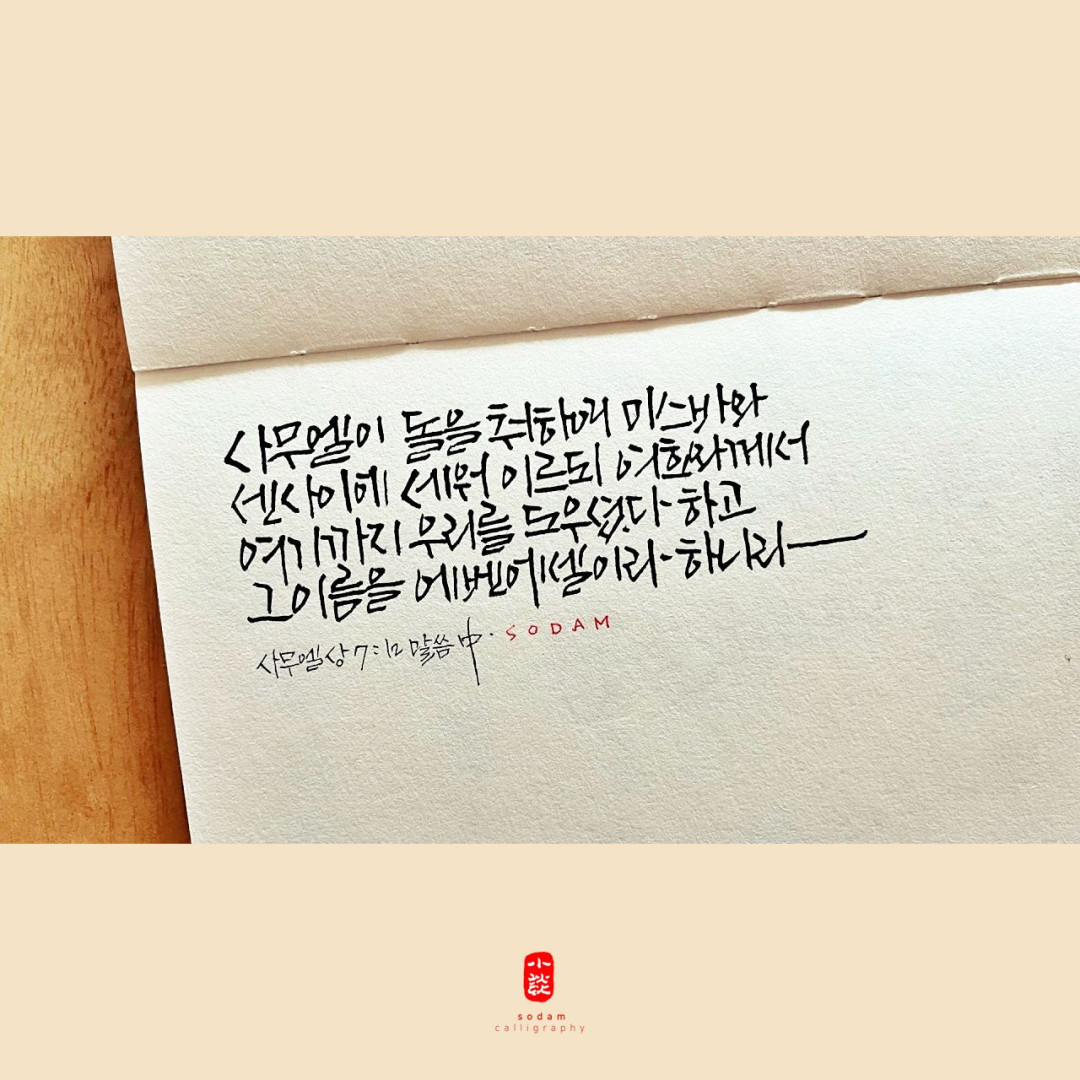 사무엘이 돌을 취하여 미스바와
센 사이에 세워 이르되 여호와께서
여기까지 우리를 도우셨다 하고
그 이름을 에벤에셀이라 하니라
사무엘상 7:12 말씀 中. SODAM
小談
sodam
calligraphy